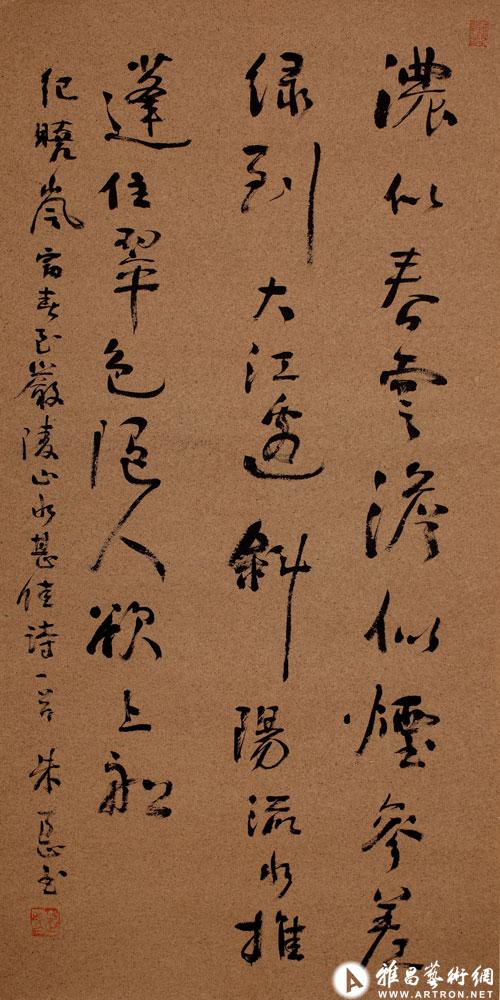 濃似春雲澹似煙參差
緑到大江邊斜陽流水推
蓬住翠色隨人欲上船
紀曉嵐富春至嚴陵山水甚佳詩一首 朱 書
雅昌藝術網
WWW.ARTRON.NET